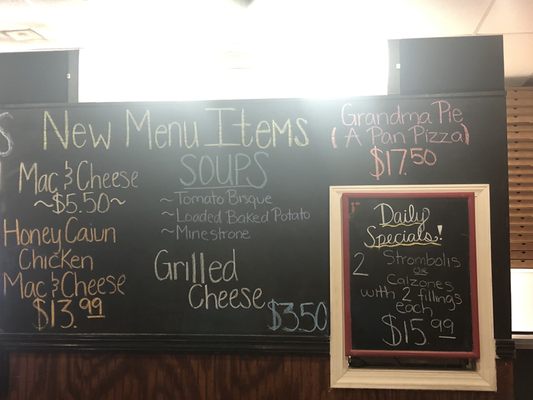 New Menu Items
Mac & Cheese
~$5.50~
Honey Cajun
Chicken
Mac & Cheese
$13.99
SOUPS
~Tomato Bisque
~Loaded Baked Potato
~Minestrone
Grilled
Cheese
$3.50
Grandma Pie
(A Pan Pizza)
$17.50
Daily
Specials!
2 Strombolis
or
Calzones
with 2 fillings
each
$15.99